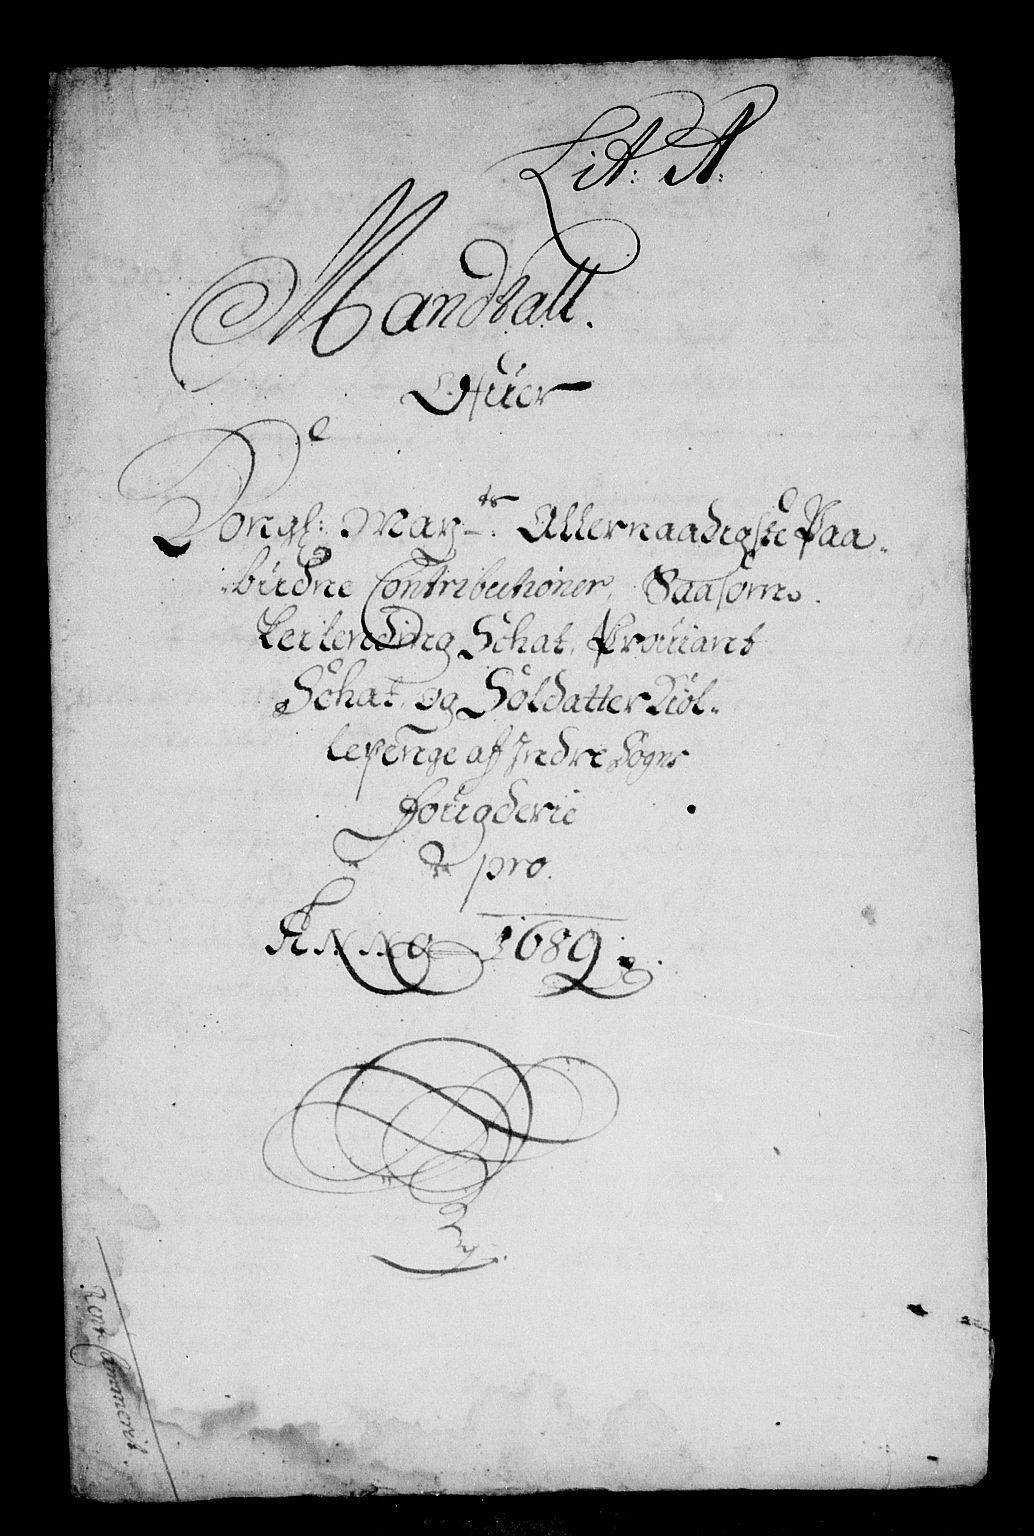 Lit: A:
Mandtall.
Ofuer
Kongl: May-ts: Allernaadigste Paa-
budne Contributioner, Saasom
Leilending Schat, Prouiant
Schat, og Soldatter Kiol-
lepenge af Indre Sogns
fougderie
pro.
Anno 1689.
Rent Cammerit.